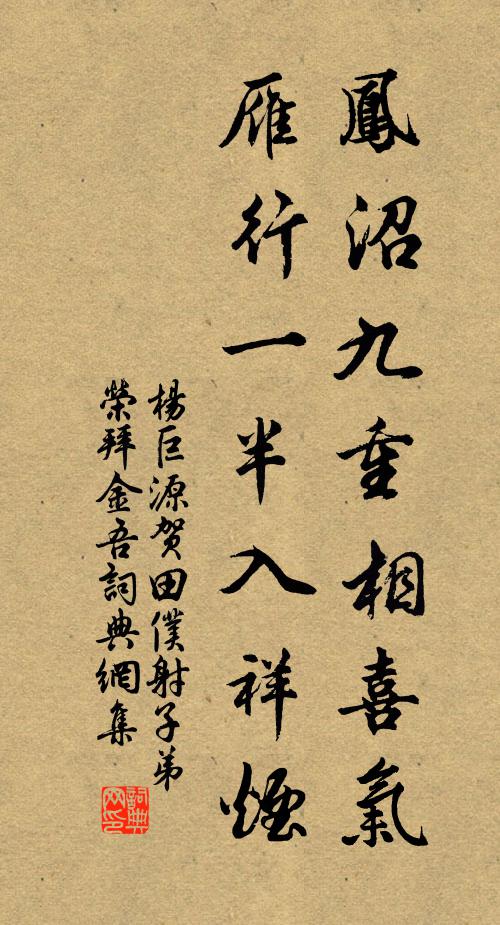 鳳沼九重相喜氣
雁行一半入祥煙
楊巨源賀田僕射子弟
榮拜金吾詞典網集
詞典網印